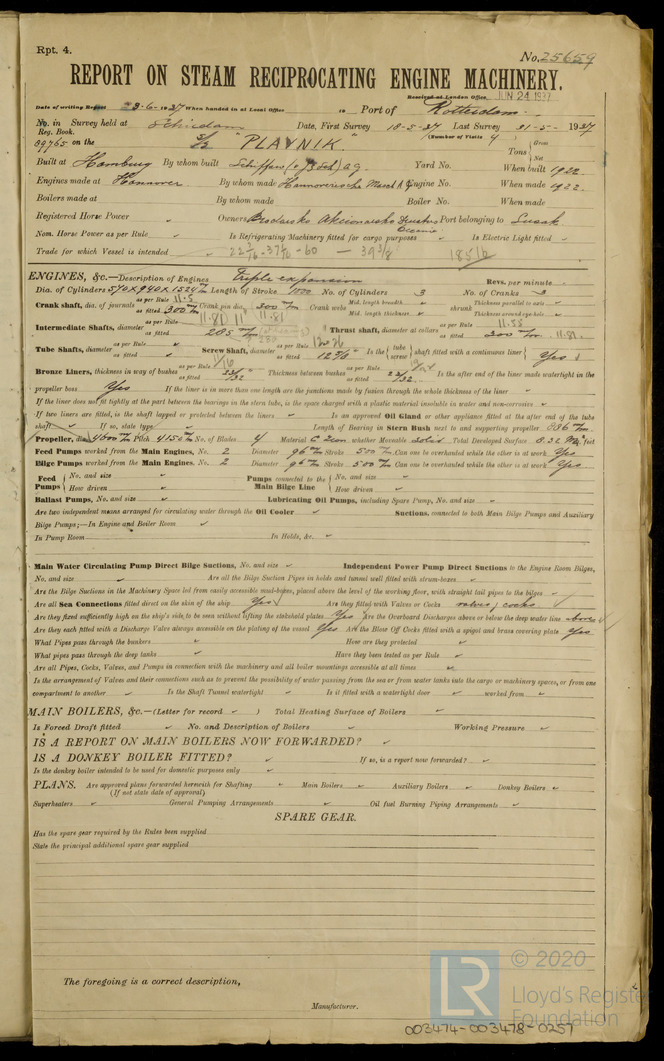 Rpt. 4.
No. 25659
REPORT ON STEAM RECIPROCATING ENGINE MACHINERY.
Received at London Office JUN 24 1937
Date of writing Report 23-6-1937 When handed in at Local Office 19 Port of Rotterdam
No. in Reg. Book. Survey held at Schiedam Date, First Survey 18-5-37 Last Survey 31-5-1937
(Number of Visits 4)
89765 on the S/S "PLAVNIK." Tons { Gross Net
Built at Hamburg By whom built Yard No. When built 1922
Engines made at Hannover By whom made Engine No. When made 1922
Boilers made at By whom made Boiler No. When made
Registered Horse Power Owners Brodarsko Akcionarsko Port belonging to Susak
Nom. Horse Power as per Rule Is Refrigerating Machinery fitted for cargo purposes Is Electric Light fitted
Trade for which Vessel is intended
ENGINES, &c.—Description of Engines Triple expansion Revs. per minute
Dia. of Cylinders 570 x 940 x 1524 Length of Stroke 1000 No. of Cylinders 3 No. of Cranks 3
Crank shaft, dia. of journals as per Rule 11.5 as fitted 300 m/m Crank pin dia. 300 m/m Crank webs Mid. length breadth Mid. length thickness shrunk Thickness parallel to axis Thickness around eye-hole
Intermediate Shafts, diameter as per Rule as fitted 285 m/m Thrust shaft, diameter at collars as per Rule 11.55 as fitted 300 m/m
Tube Shafts, diameter as per Rule as fitted Screw Shaft, diameter as per Rule as fitted Is the { tube screw } shaft fitted with a continuous liner { Yes
Bronze Liners, thickness in way of bushes as per Rule as fitted 23/32" Thickness between bushes as per Rule as fitted Is the after end of the liner made watertight in the
propeller boss Yes If the liner is in more than one length are the junctions made by fusion through the whole thickness of the liner
If the liner does not fit tightly at the part between the bearings in the stern tube, is the space charged with a plastic material insoluble in water and non-corrosive
If two liners are fitted, is the shaft lapped or protected between the liners Is an approved Oil Gland or other appliance fitted at the after end of the tube
shaft If so, state type Length of Bearing in Stern Bush next to and supporting propeller
Propeller, dia. 4600 m/m Pitch 4150 m/m No. of Blades 4 Material C. Iron whether Moveable solid Total Developed Surface 8.32 sq. feet
Feed Pumps worked from the Main Engines, No. 2 Diameter 96 m/m Stroke 500 m/m Can one be overhauled while the other is at work Yes
Bilge Pumps worked from the Main Engines, No. 2 Diameter 96 m/m Stroke 500 m/m Can one be overhauled while the other is at work Yes
Feed Pumps { No. and size How driven Pumps connected to the Main Bilge Line { No. and size How driven
Ballast Pumps, No. and size Lubricating Oil Pumps, including Spare Pump, No. and size
Are two independent means arranged for circulating water through the Oil Cooler Suctions, connected to both Main Bilge Pumps and Auxiliary
Bilge Pumps;—In Engine and Boiler Room
In Pump Room In Holds, &c.
Main Water Circulating Pump Direct Bilge Suctions, No. and size Independent Power Pump Direct Suctions to the Engine Room Bilges,
No. and size Are all the Bilge Suction Pipes in holds and tunnel well fitted with strum-boxes
Are the Bilge Suctions in the Machinery Space led from easily accessible mud-boxes, placed above the level of the working floor, with straight tail pipes to the bilges
Are all Sea Connections fitted direct on the skin of the ship Yes Are they fitted with Valves or Cocks valves & cocks
Are they fixed sufficiently high on the ship's side to be seen without lifting the stokehold plates Yes Are the Overboard Discharges above or below the deep water line above
Are they each fitted with a Discharge Valve always accessible on the plating of the vessel Yes Are the Blow Off Cocks fitted with a spigot and brass covering plate Yes
What Pipes pass through the bunkers How are they protected
What pipes pass through the deep tanks Have they been tested as per Rule
Are all Pipes, Cocks, Valves, and Pumps in connection with the machinery and all boiler mountings accessible at all times
Is the arrangement of Valves and their connections such as to prevent the possibility of water passing from the sea or from water tanks into the cargo or machinery spaces, or from one
compartment to another Is the Shaft Tunnel watertight Is it fitted with a watertight door worked from
MAIN BOILERS, &c.—(Letter for record ) Total Heating Surface of Boilers
Is Forced Draft fitted No. and Description of Boilers Working Pressure
IS A REPORT ON MAIN BOILERS NOW FORWARDED?
IS A DONKEY BOILER FITTED? If so, is a report now forwarded?
Is the donkey boiler intended to be used for domestic purposes only
PLANS. Are approved plans forwarded herewith for Shafting Main Boilers Auxiliary Boilers Donkey Boilers
(If not state date of approval)
Superheaters General Pumping Arrangements Oil fuel Burning Piping Arrangements
SPARE GEAR.
Has the spare gear required by the Rules been supplied
State the principal additional spare gear supplied
The foregoing is a correct description,
Manufacturer.
LR © 2020
Lloyd's Register
Foundation
003474-003478-0257